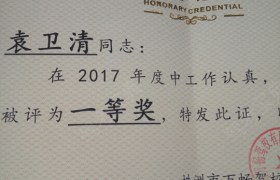 HONORARY CREDENTIAL
袁卫清同志：
在 2017 年度中工作认真，
被评为一等奖，特发此证，